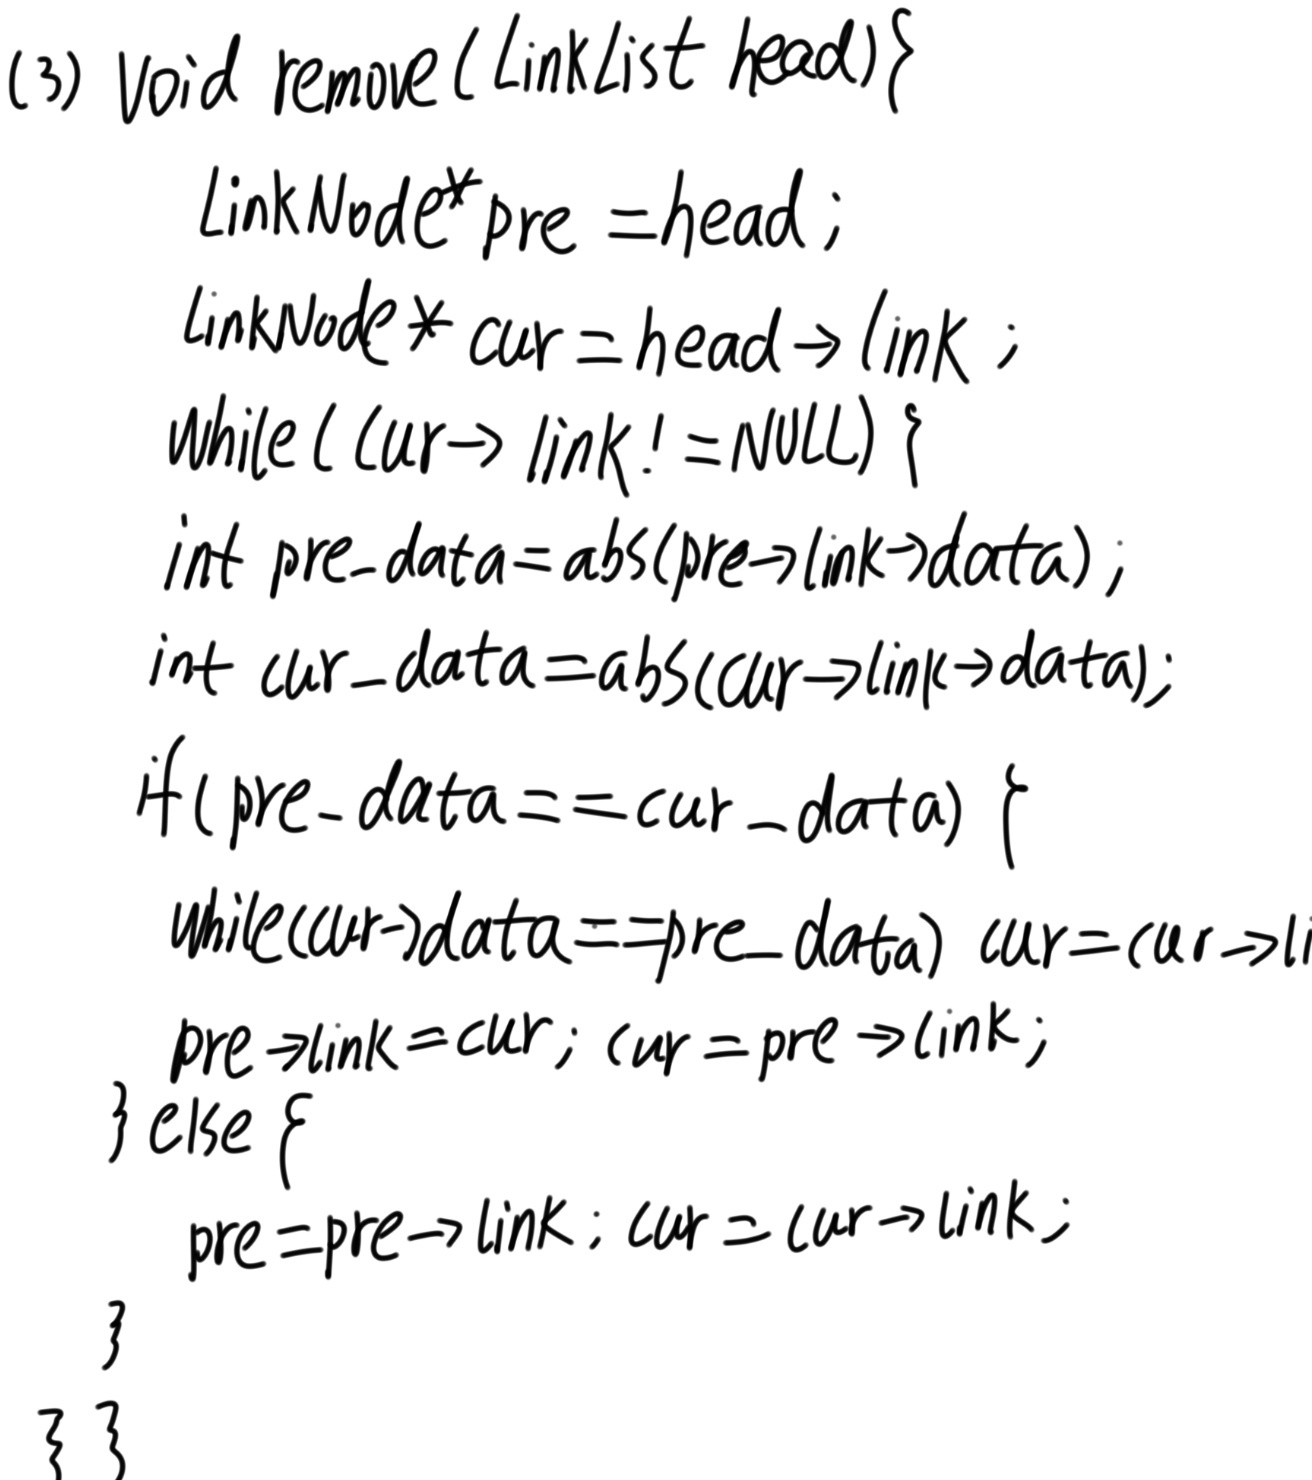 (3) void remove(LinkList head){
LinkNode* pre = head;
LinkNode* cur = head->link;
while(cur->link!=NULL){
int pre_data=abs(pre->link->data);
int cur_data=abs(cur->link->data);
if(pre_data==cur_data){
while(cur->data==pre_data) cur=cur->li
pre->link=cur; cur=pre->link;
}else{
pre=pre->link; cur=cur->link;
}
}}